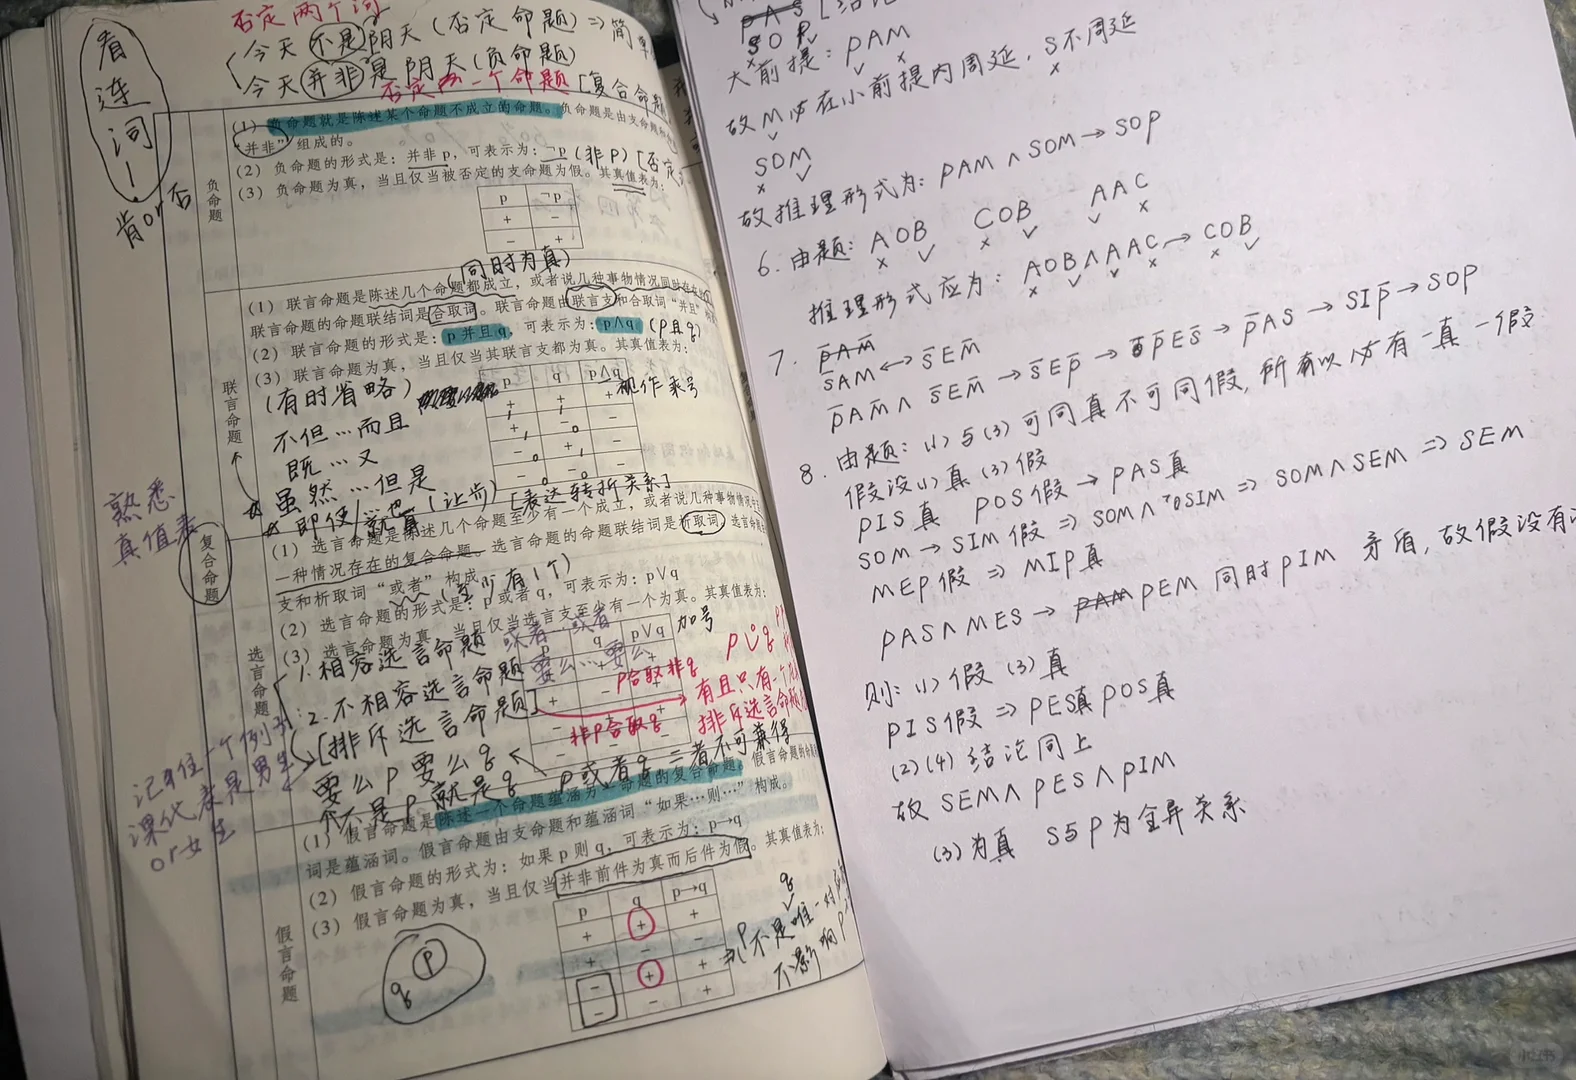 否定两个词
今天不是阴天(否定命题)⇒简单
今天并非是阴天(负命题)
否定一个命题[复合命题
看连词!
肯or否
负命题
(1) 负命题就是陈述某个命题不成立的命题。负命题是由支命题和
“并非”组成的。
(2) 负命题的形式是:并非 p,可表示为:¬p(非P)[否定
(3) 负命题为真,当且仅当被否定的支命题为假。其真值表为:
p ¬p
+ -
- +
(同时为真)
联言命题
(1) 联言命题是陈述几个命题都成立,或者说几种事物情况同时存在的
联言命题的命题联结词是合取词。联言命题由联言支和合取词“并且”
(2) 联言命题的形式是:p 并且 q,可表示为:p∧q (P且q)
(3) 联言命题为真,当且仅当其联言支都为真。其真值表为:
(有时省略)
p q p∧q 视作乘号
+ + +
+ - -
- + -
- - -
不但…而且
既…又
虽然…但是
即使/就算(让步)[表达转折关系]
熟悉
真值表
复合命题
选言命题
(1) 选言命题是陈述几个命题至少有一个成立,或者说几种事物情况
一种情况存在的复合命题。选言命题的命题联结词是析取词,选言命题
支和析取词“或者”构成 (至少有1个)
(2) 选言命题的形式是:p 或者 q,可表示为:p∨q
(3) 选言命题为真,当且仅当选言支至少有一个为真。其真值表为:
p q p∨q 加号
1.相容选言命题 或者…或者
2.不相容选言命题 要么…要么
[排斥选言命题]
P合取非q
非P合取q
有且只有一个
排斥选言命题
要么P要么q
不是P就是q
P或者q二者不可兼得
记住一个例子
课代表是男生
or女生
假言命题
(1) 假言命题是陈述一个命题蕴涵另一命题的复合命题。假言命题的命题
词是蕴涵词。假言命题由支命题和蕴涵词“如果…则…”构成。
(2) 假言命题的形式为:如果 p 则 q,可表示为:p→q
(3) 假言命题为真,当且仅当并非前件为真而后件为假。其真值表为:
p q p→q
+ + +
+ - -
- + +
- - +
P q
P不是唯一对
不影响P
SOP
大前提:PAM
故M必在小前提内周延,S不周延
SOM
故推理形式为:PAM∧SOM→SOP
6.由题:AOB COB AAC
推理形式应为:AOB∧AAC→COB
7. P̄AM̄
SAM↔S̄EM̄
P̄AM̄∧S̄EM̄→S̄EP̄→P̄ES̄→P̄AS→SIP̄→SOP
8.由题:(1)与(3)可同真不可同假,所以必有一真一假
假设(1)真(3)假
PIS真 POS假→PAS真
SOM→SIM假⇒SOM∧¬SIM⇒SOM∧SEM⇒SEM
MEP假⇒MIP真
PAS∧MES→PEM 同时PIM 矛盾,故假设没有
则:(1)假(3)真
PIS假⇒PES真POS真
(2)(4)结论同上
故SEM∧PES∧PIM
(3)为真 S与P为全异关系